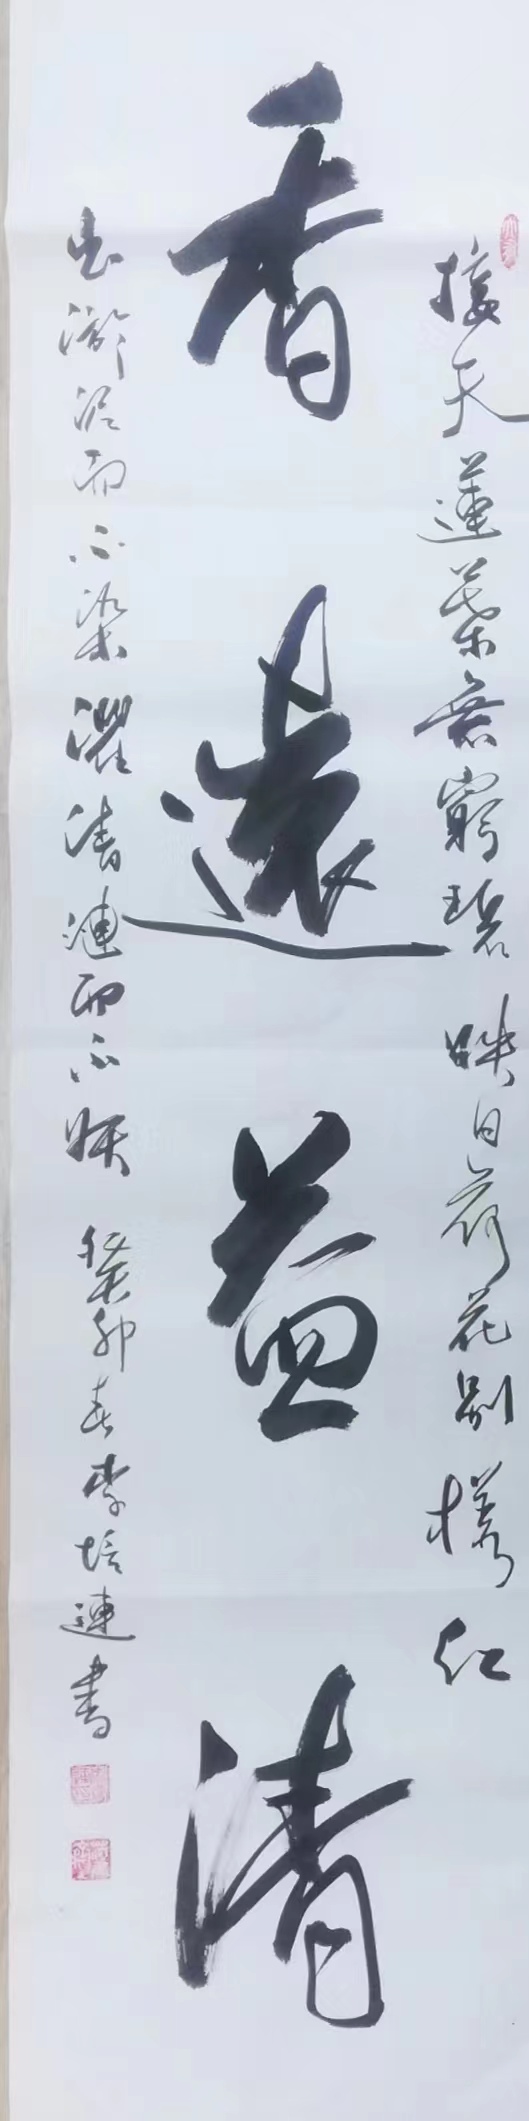 接天蓮葉無窮碧 映日荷花別樣红
香遠益清
出淤泥而不染濯清漣而不妖 癸卯春李培連書